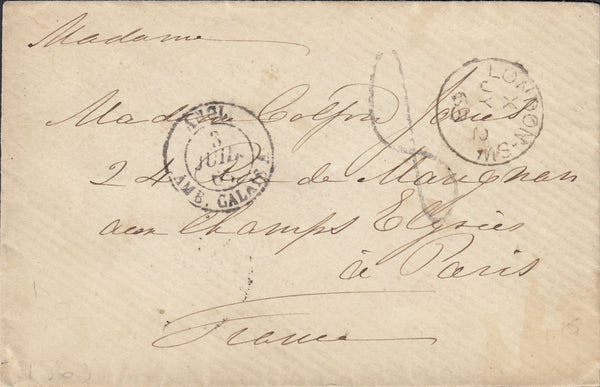 Madame
Madame Colfox Jones
24 Rue de Marignan
aux Champs Elysées
à Paris
France
ANGL.
3
JUIL
AMB. CALAIS
LONDON-SW
X
JY 2
69